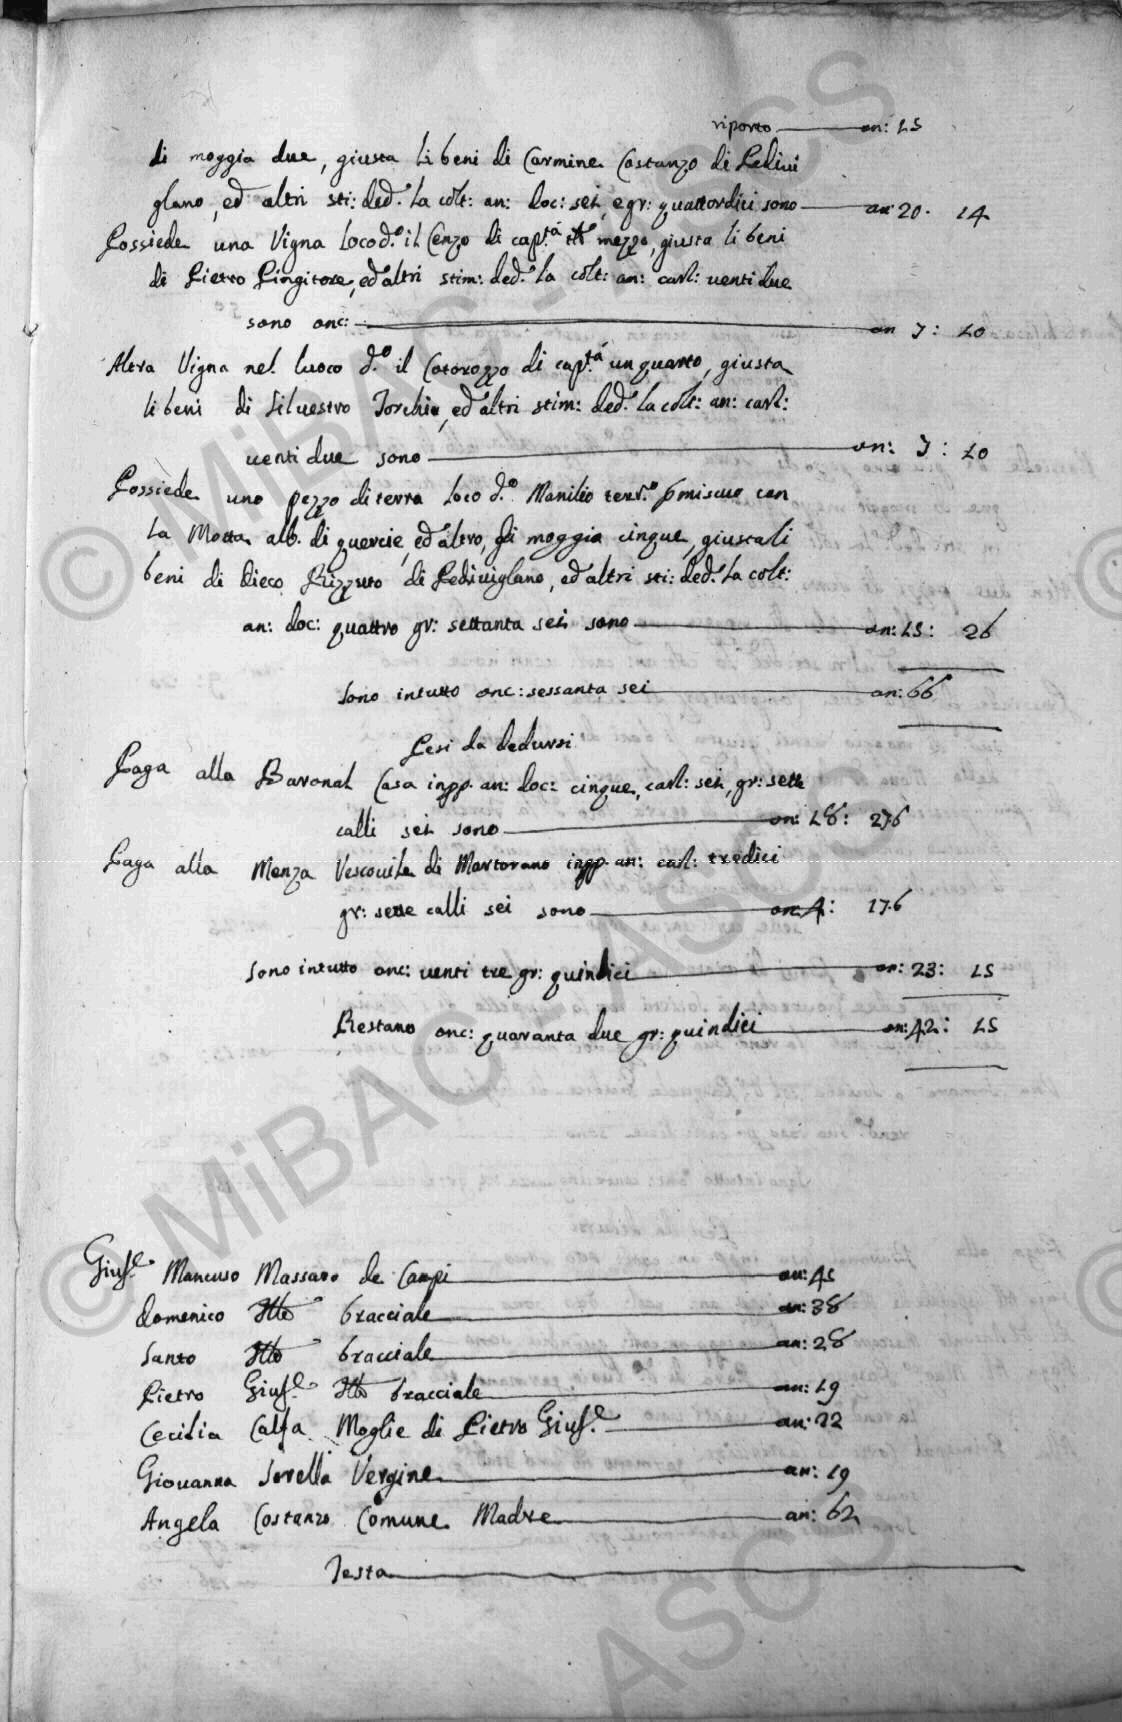 riporto on: 15
di moggia due, giusta li beni di Carmine Costanzo di Pedivi
glano, ed altri sti: ded.ᵒ la colt: an: doc: sei, e gr: quattordici sono on: 20. 14
Possiede una Vigna loco d.ᵒ il Cenzo di cap.ᵗᵃ mezzo, giusta li beni
di Pietro Pingitore, ed altri stim: ded.ᵒ la colt: an: carl: venti due
sono onc: on 7: 10
Altra Vigna nel luoco d.ᵒ il Cotorozzo di cap.ᵗᵃ un quarto, giusta
li beni di Silvestro Torchia, ed altri stim: ded.ᵒ la colt: an: carl:
venti due sono on: 7: 10
Possiede uno pezzo di terra loco d.ᵒ Manilio terr.ᵒ pmiscuo con
la Motta alb. di quercie, ed altro, di moggia cinque, giusta li
beni di Dieco Rizzuto di Pediviglano, ed altri sti: ded.ᵒ la colt:
an: doc: quattro gr: settanta sei sono on: 15: 26
Sono intutto onc: sessanta sei on: 66
Pesi da dedursi
Paga alla Baronal Casa inpp. an: doc: cinque, carl: sei, gr: sette
calli sei sono on: 18: 27.6
Paga alla Menza Vescovile di Martorano inpp. an: carl: tredici
gr: sette calli sei sono on: 4: 17.6
Sono intutto onc: venti tre gr: quindici on: 23: 15
Restano onc: quaranta due gr: quindici on: 42: 15
Gius.ᵉ Mancuso Massaro de Campi an: 45
Domenico fllo bracciale an: 38
Santo fllo bracciale an: 28
Pietro Gius.ᵉ fllo bracciale an: 19
Cecilia Calfa Moglie di Pietro Gius.ᵉ an: 22
Giovanna Sorella Vergine an: 19
Angela Costanzo Comune Madre an: 62
Testa
© MiBAC - ASCS
© MiBAC - ASCS
ASCS